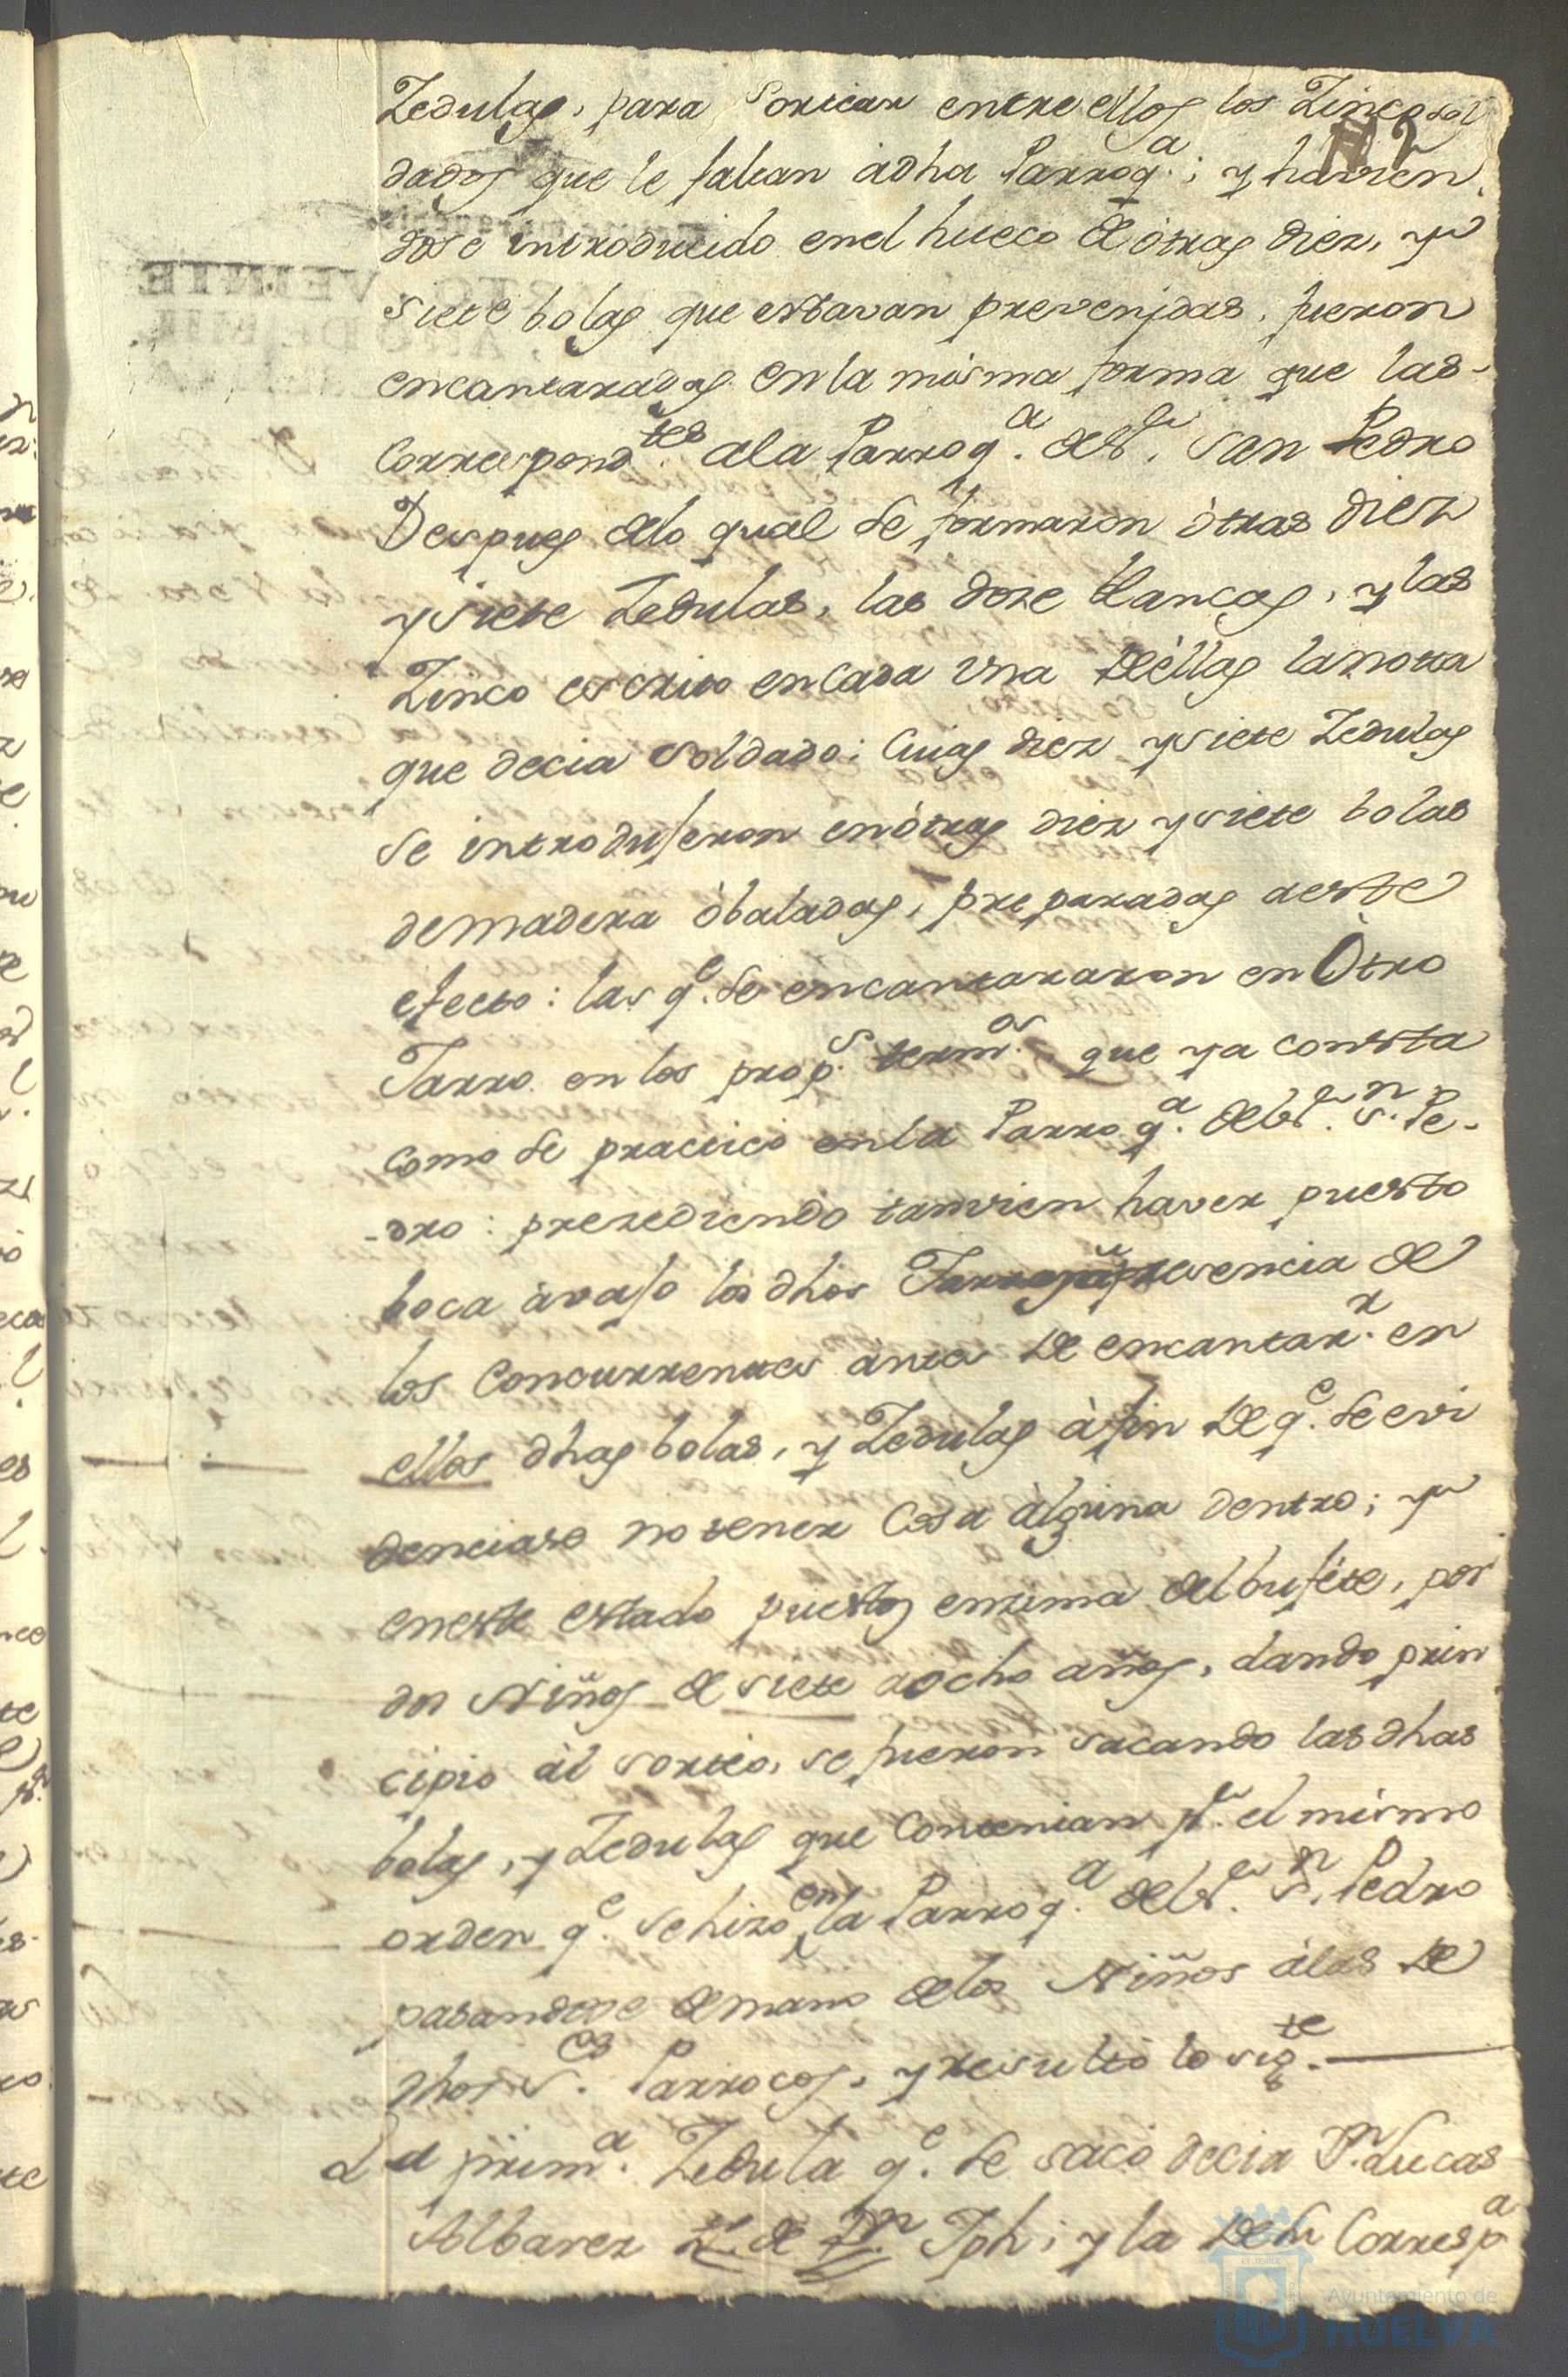 Zedulas, para Sortear entre ellos los Zinco sol
dados que le faltan à dha Parroq.ª; y havien
dose introducido en el hueco de òtras diez, y
siete bolas que estavan prevenidas, fueron
encantaradas en la misma forma que las-
Correspond.tes ala Parroq.ª de S.r San Pedro
Despues delo qual se formaron òtras diez
y siete Zedulas, las doze blancas, y las
Zinco escrito en Cada una de èllas la nota
que decia Soldado; Cuias diez y siete Zedulas
se introdujeron en òtras diez y siete bolas
de madera òbaladas, preparadas a este
efecto: las q.e se encantararon en Òtro
Jarro en los prop.s term.os que ya consta
como se practicò en la Parroq.ª de S.r S.n Pe-
-dro: prezediendo tanvien haver puesto
boca àvajo los dhos presencia de
los Concurrentes àntes de encantar.r en
ellos dhas bolas, y Zedulas à fin de q.e se evi
denciase no tener Cosa àlguna dentro; y
en este estado puestos enzima del bufete, por
dos Niños de siete a ocho años, dando prin
cipio àl sorteo, se fueron sacando las dhas
bolas, y Zedulas que Contenian p.r el mismo
orden q.e se hizo en la Parroq.ª de S.r S.n Pedro
pasandose de mano de los Niños àlas de
dhos S.es Parrocos, y resultò lo sig.te
La prim.ª Zedula q.e se sacò decia D.n Lucas
Albarez de D.n Jph; y la de su Corresp.ª
VEINTE
Ayuntamiento de
HUELVA